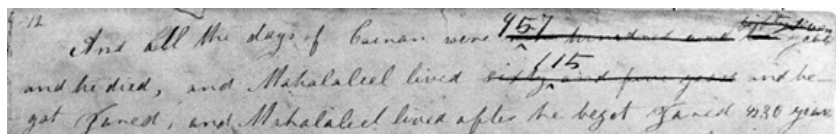 12
957
And all the days of Cainan were nine hundred and ten years
and he died, and Mahalaleel lived sixty and five years and be-
got Jared, and Mahalaleel lived after he begot Jared 830 years